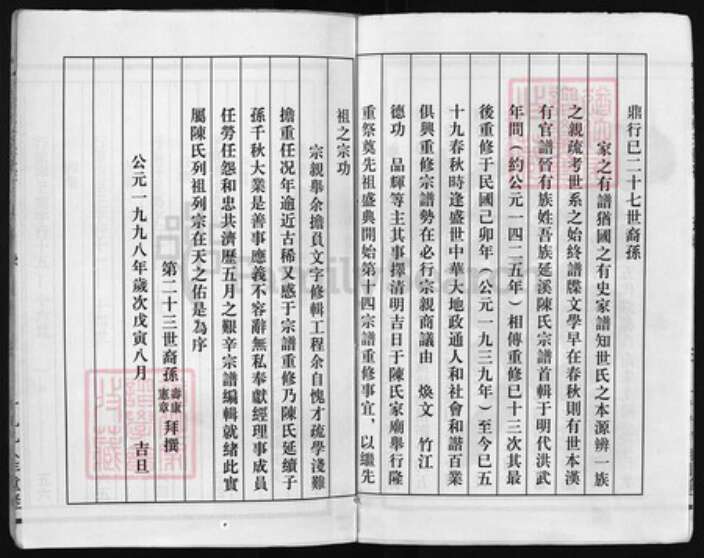 鼎行巳二十七世裔孫
家之有譜猶國之有史家譜知世氏之本源辨一族
之親疏考世系之始終譜牒文學早在春秋則有世本漢
有官譜晉有族姓吾族延溪陳氏宗譜首輯于明代洪武
年間（約公元一四二五年）相傳重修巳十三次其最
後重修于民國己卯年（公元一九三九年）至今巳五
十九春秋時逢盛世中華大地政通人和社會和諧百業
俱興重修宗譜勢在必行宗親商議由　煥文　竹江
德功　品輝等主其事擇清明吉日于陳氏家廟舉行隆
重祭奠先祖盛典開始第十四宗譜重修事宜，以繼先
祖之宗功
宗親舉余擔負文字修輯工程余自愧才疏學淺難
擔重任况年逾近古稀又感于宗譜重修乃陳氏延續子
孫千秋大業是善事應義不容辭無私奉獻經理事成員
任勞任怨和忠共濟歷五月之艱辛宗譜編輯就緒此實
屬陳氏列祖列宗在天之佑是為序
第二十三世裔孫 壽康 憲章 拜撰
公元一九九八年歲次戊寅八月　　吉旦
FamilySearch